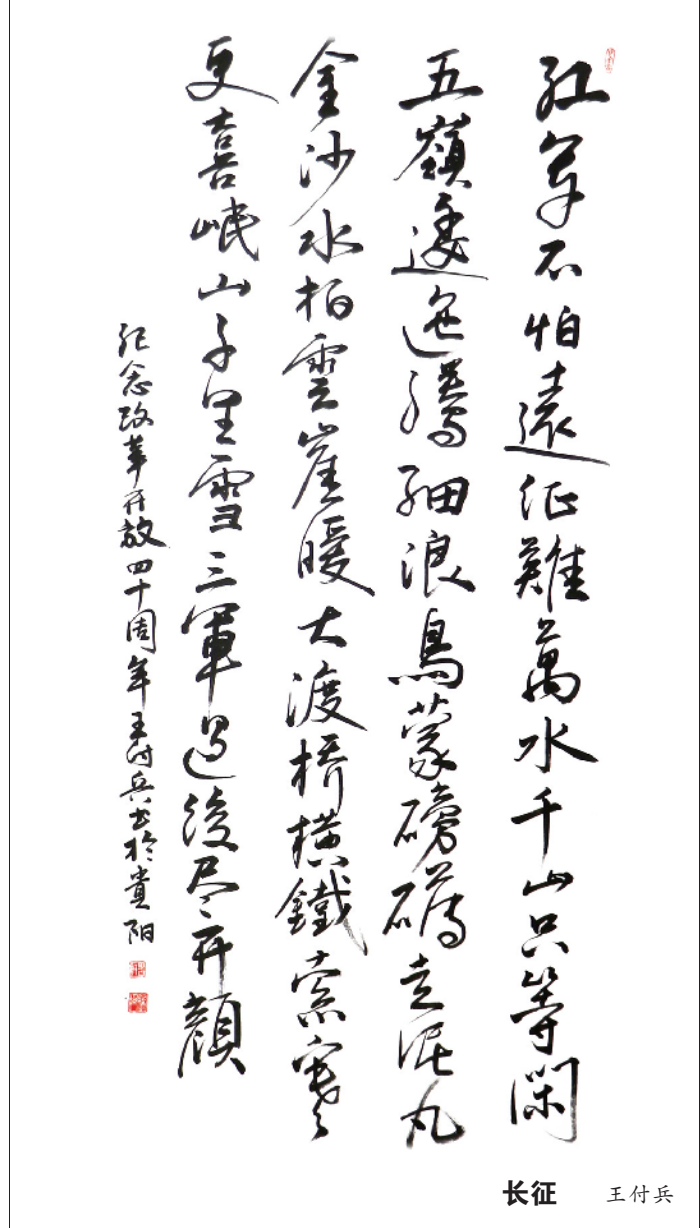 红军不怕遠征難萬水千山只等閑
五嶺逶迤騰细浪烏蒙磅礴走泥丸
金沙水拍雲崖暖大渡橋横鐵索寒
更喜岷山千里雪三軍过後尽开顏
纪念改革开放四十周年王付兵书於贵阳
长征 王付兵